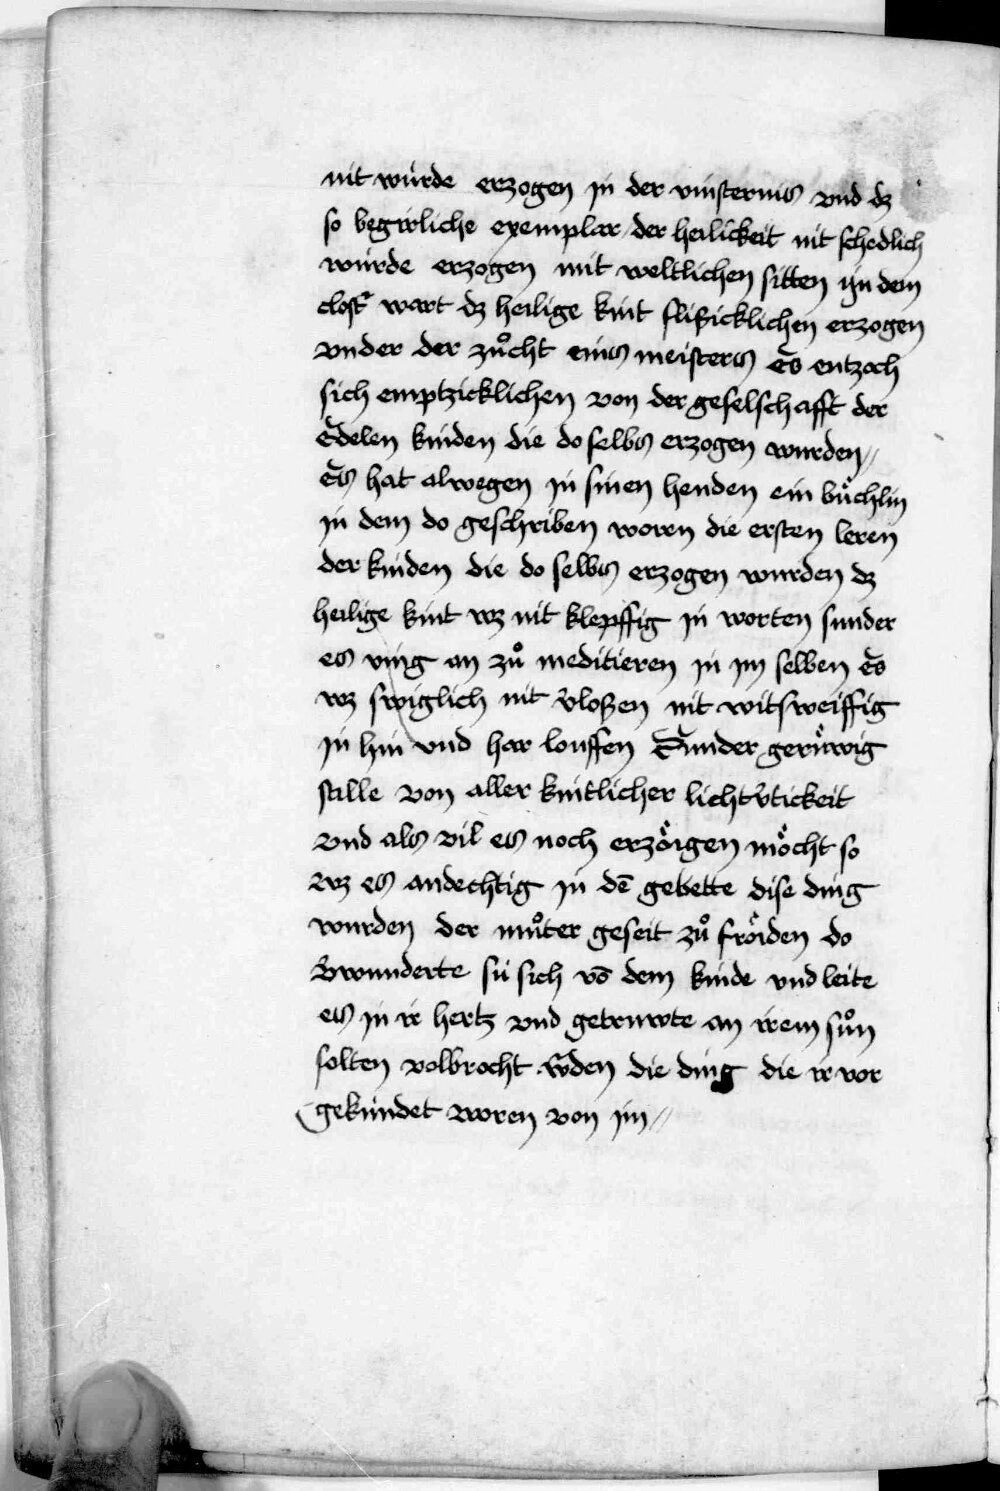 nit würde erzogen in der vinsternis vnd dz
so begirliche exemplar der heilickeit nit schedlich
würde erzogen mit weltlichen sitten ijn dem
clost᷑ wart dz heilige kint flißicklichen erzogen
vnder der zůcht eins meisters Es entzoch
sich emptzicklichen von der geselschafft der
Edelen kinden die do selbs erzogen wurden //
Es hat alwegen in sinen henden ein bůchlin
in dem do geschriben woren die ersten leren
der kinden die do selbs erzogen wurden dz
heilige kint wz nit klepffig in worten sunder
es ving an zů meditieren in im selben Es
wz swiglich nit v̾loßen nit witsweiffig
in hin vnd har louffen Sunder gerůwig
stille von aller kintlicher lichtv̾tickeit
vnd als vil es noch erzöigen möcht so
wz es andechtig in dē gebette dise ding
wurden der můter geseit zů fröiden do
v̾wunderte sü sich vō dem kinde vnd leite
es in ir hertz vnd getruwte an irem sůn
solten volbrocht w̾den die ding die ir vor
gekündet woren von im //